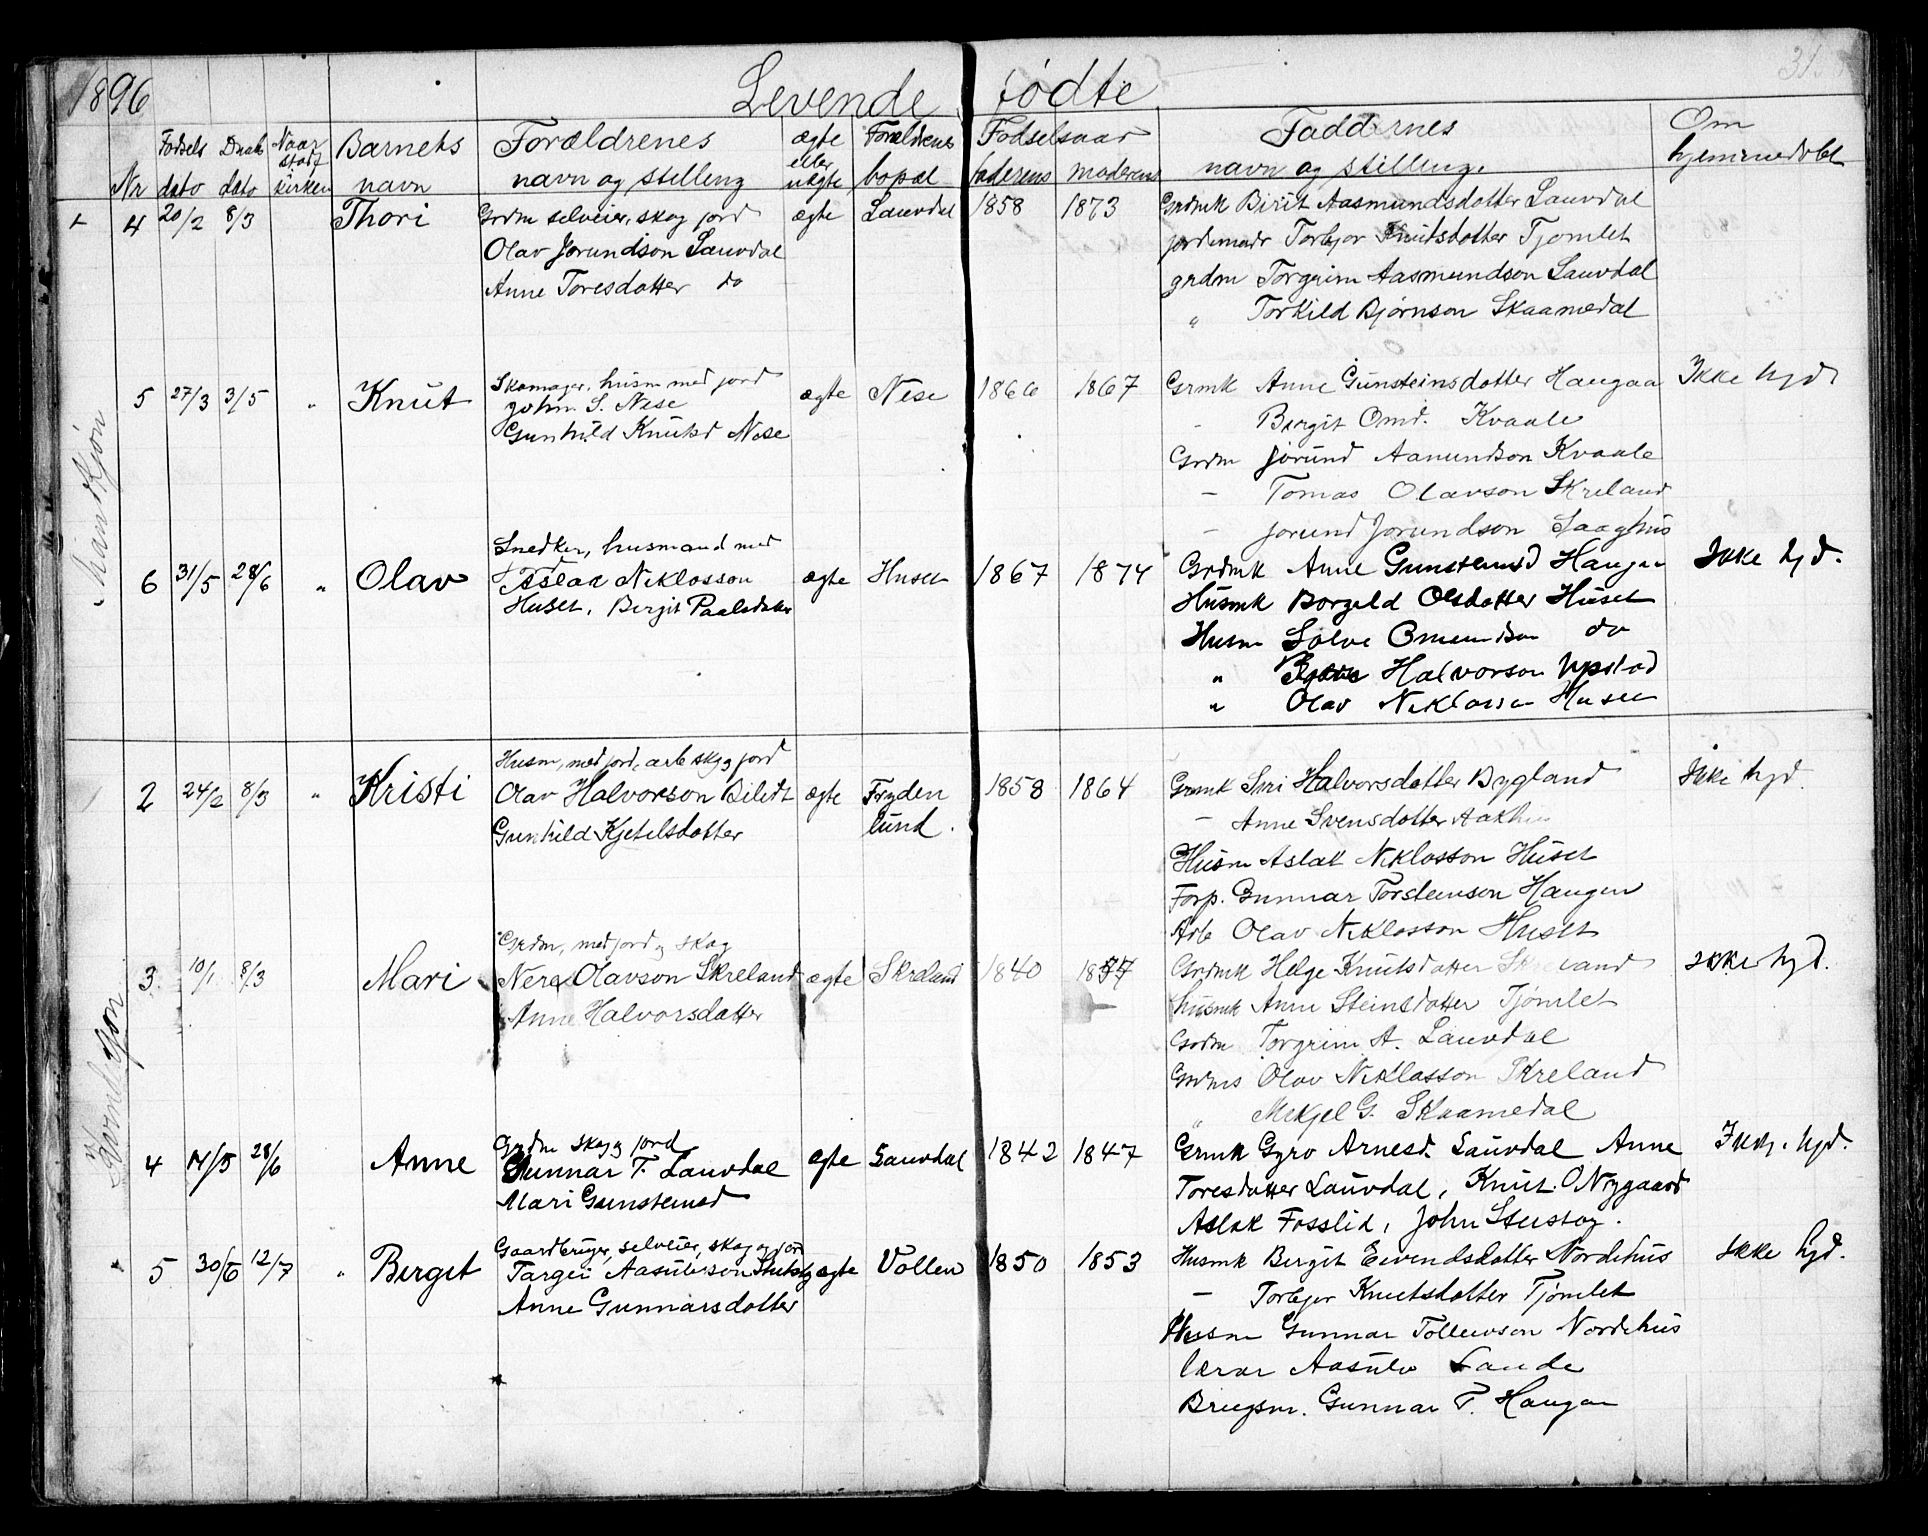 1896 Levende fødte 31.
Nr Fødsels dato Daabs dato Naar stadf kirken Barnets navn Forældrenes navn og stilling ægte eller uægte Forældrenes bopæl Fødselsaar faderens moderens Faddernes navn og stilling. Om hjemmedøbt
Mankjøn
4 20/2 8/3 Thori Grdm selveier, skog jord ægte Lauvdal 1858 1873 Grdmk Birit Aasmundsdotter Lauvdal
Olav Jorundson Lauvdal jordemodr Torbjor Knutsdotter Tjomlet
Anne Toresdotter do grdm Torgrim Aasmundson Lauvdal
" Torkild Bjørnson Skaamedal
5 27/3 3/5 " Knut Skomager, husm med jord ægte Nese 1866 1867 Grmk Anne Gunsteinsdotter Haugaa Ikke hjd
John S. Nese - Bergit Omd. Kvaale
Gunhild Knutsd Nese Grdm Jorund Aamundson Kvaale
- Tomas Olavson Skreland
- Jorund Jorundson Laaghus
6 31/5 28/6 " Olav Snedker, husmand med ægte Huset 1867 1874 Grdmk Anne Gunsteinsd Haugaa Ikke hjd.
jord
Aslaa Niklosson Husmk Borgild Olsdotter Huset
Huset, Bergit Paalsdotter Husm Solve Omundson do
" Halvorson Upstad
" Olav Niklosson Huset
Kvindekjøn
2 24/2 8/3 " Kristi Husm, med jord, arb skog jord ægte Fryden lund. 1858 1864 Grmk Siri Halvorsdotter Bygland Ikke hjd.
Olav Halvorson Bilidt - Anne Svensdotter Aakhus
Gunhild Kjetelsdotter Husm Aslak Niklosson Huset
Forp. Gunnar Torsteinson Haugen
Arb Olav Niklosson Huset
3 10/1 8/3 Mari Grdm, med jord og skog ægte Skreland 1840 1857 Grdmk Helge Knutsdotter Skreland Ikke hjd.
Neri Olavson Skreland husmk Anne Steinsdotter Tjømlet
Anne Halvorsdotter Grdm Torgrim A. Lauvdal
Grdms Olav Niklosson Skreland
" Mikjel G. Skaamedal
4 14/5 28/6 Anne Grdm skog jord ægte Lauvdal 1842 1847 Grmk Gyro Arnesd. Lauvdal Anne Ikke. hjd.
Gunnar T. Lauvdal Toresdotter Lauvdal, Knut O Nygaard
Mari Gunsteinsd Aslak Fosslid, John Stustog.
5 30/6 12/7 " Bergit Gaardbruger, selveier, skog og jord ægte Vollen 1850 1853 Husmk Bergit Eivendsdotter Nordihus Ikke hjd.
Targei Aasulvson Stustog - Torbjor Knutsdotter Tjømlet
Anne Gunnarsdotter Husm Gunnar Tollevson Nordihus
lærar Aasulv Sande
Brugsm. Gunnar T. Haugen